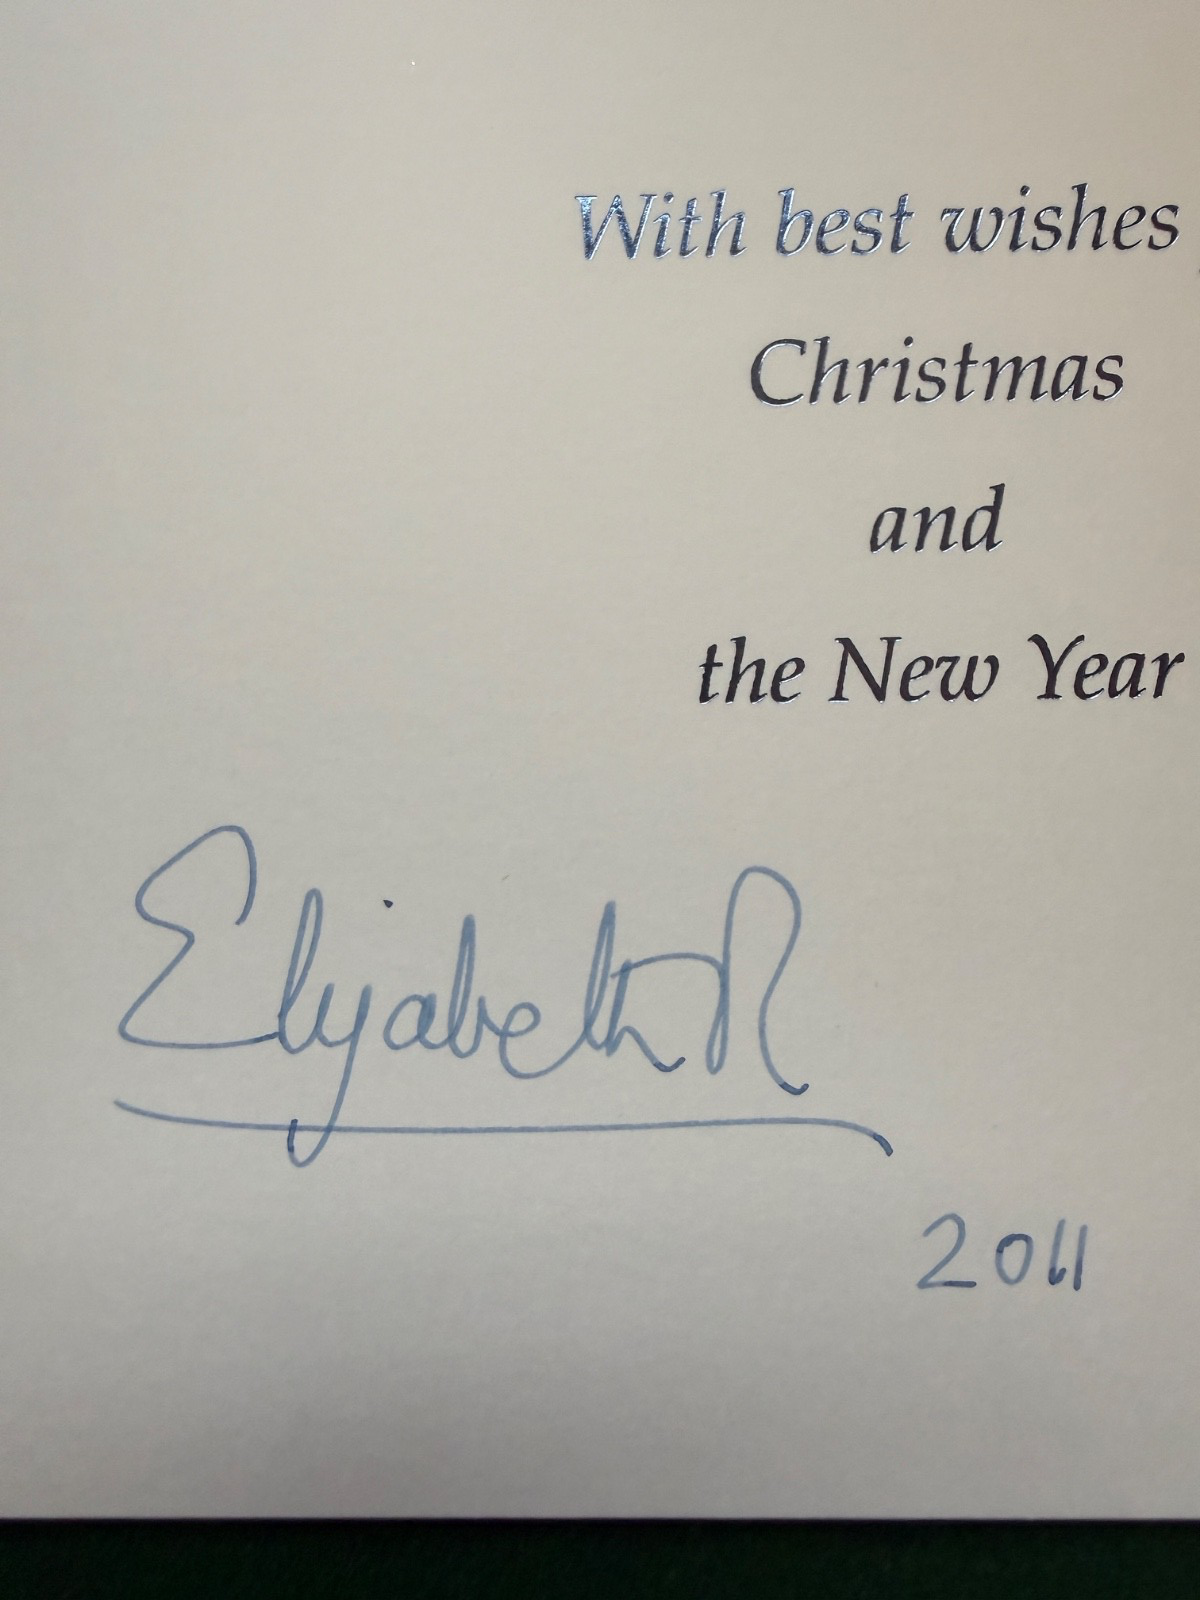 With best wishes
Christmas
and
the New Year
Elizabeth R
2011